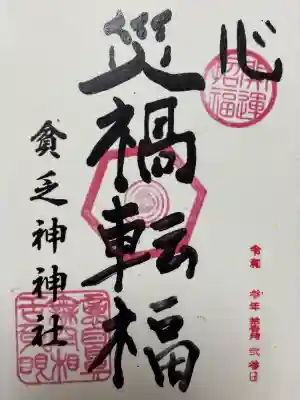 心
開運
招福
災禍転福
貧乏神神社
令和 参年